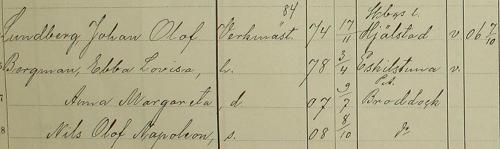 84 Wbgs l.
Lundberg Johan Olof Verkmäst 74 17/11 Hjälstad v. 06 7/10
Bergman, Ebba Lovisa, h. 78 3/4 Eskilstuna v.
7 Anna Margareta, d. 07 9/7 Broddock
8 Nils Olof Napoleon, s. 08 8/10 Do